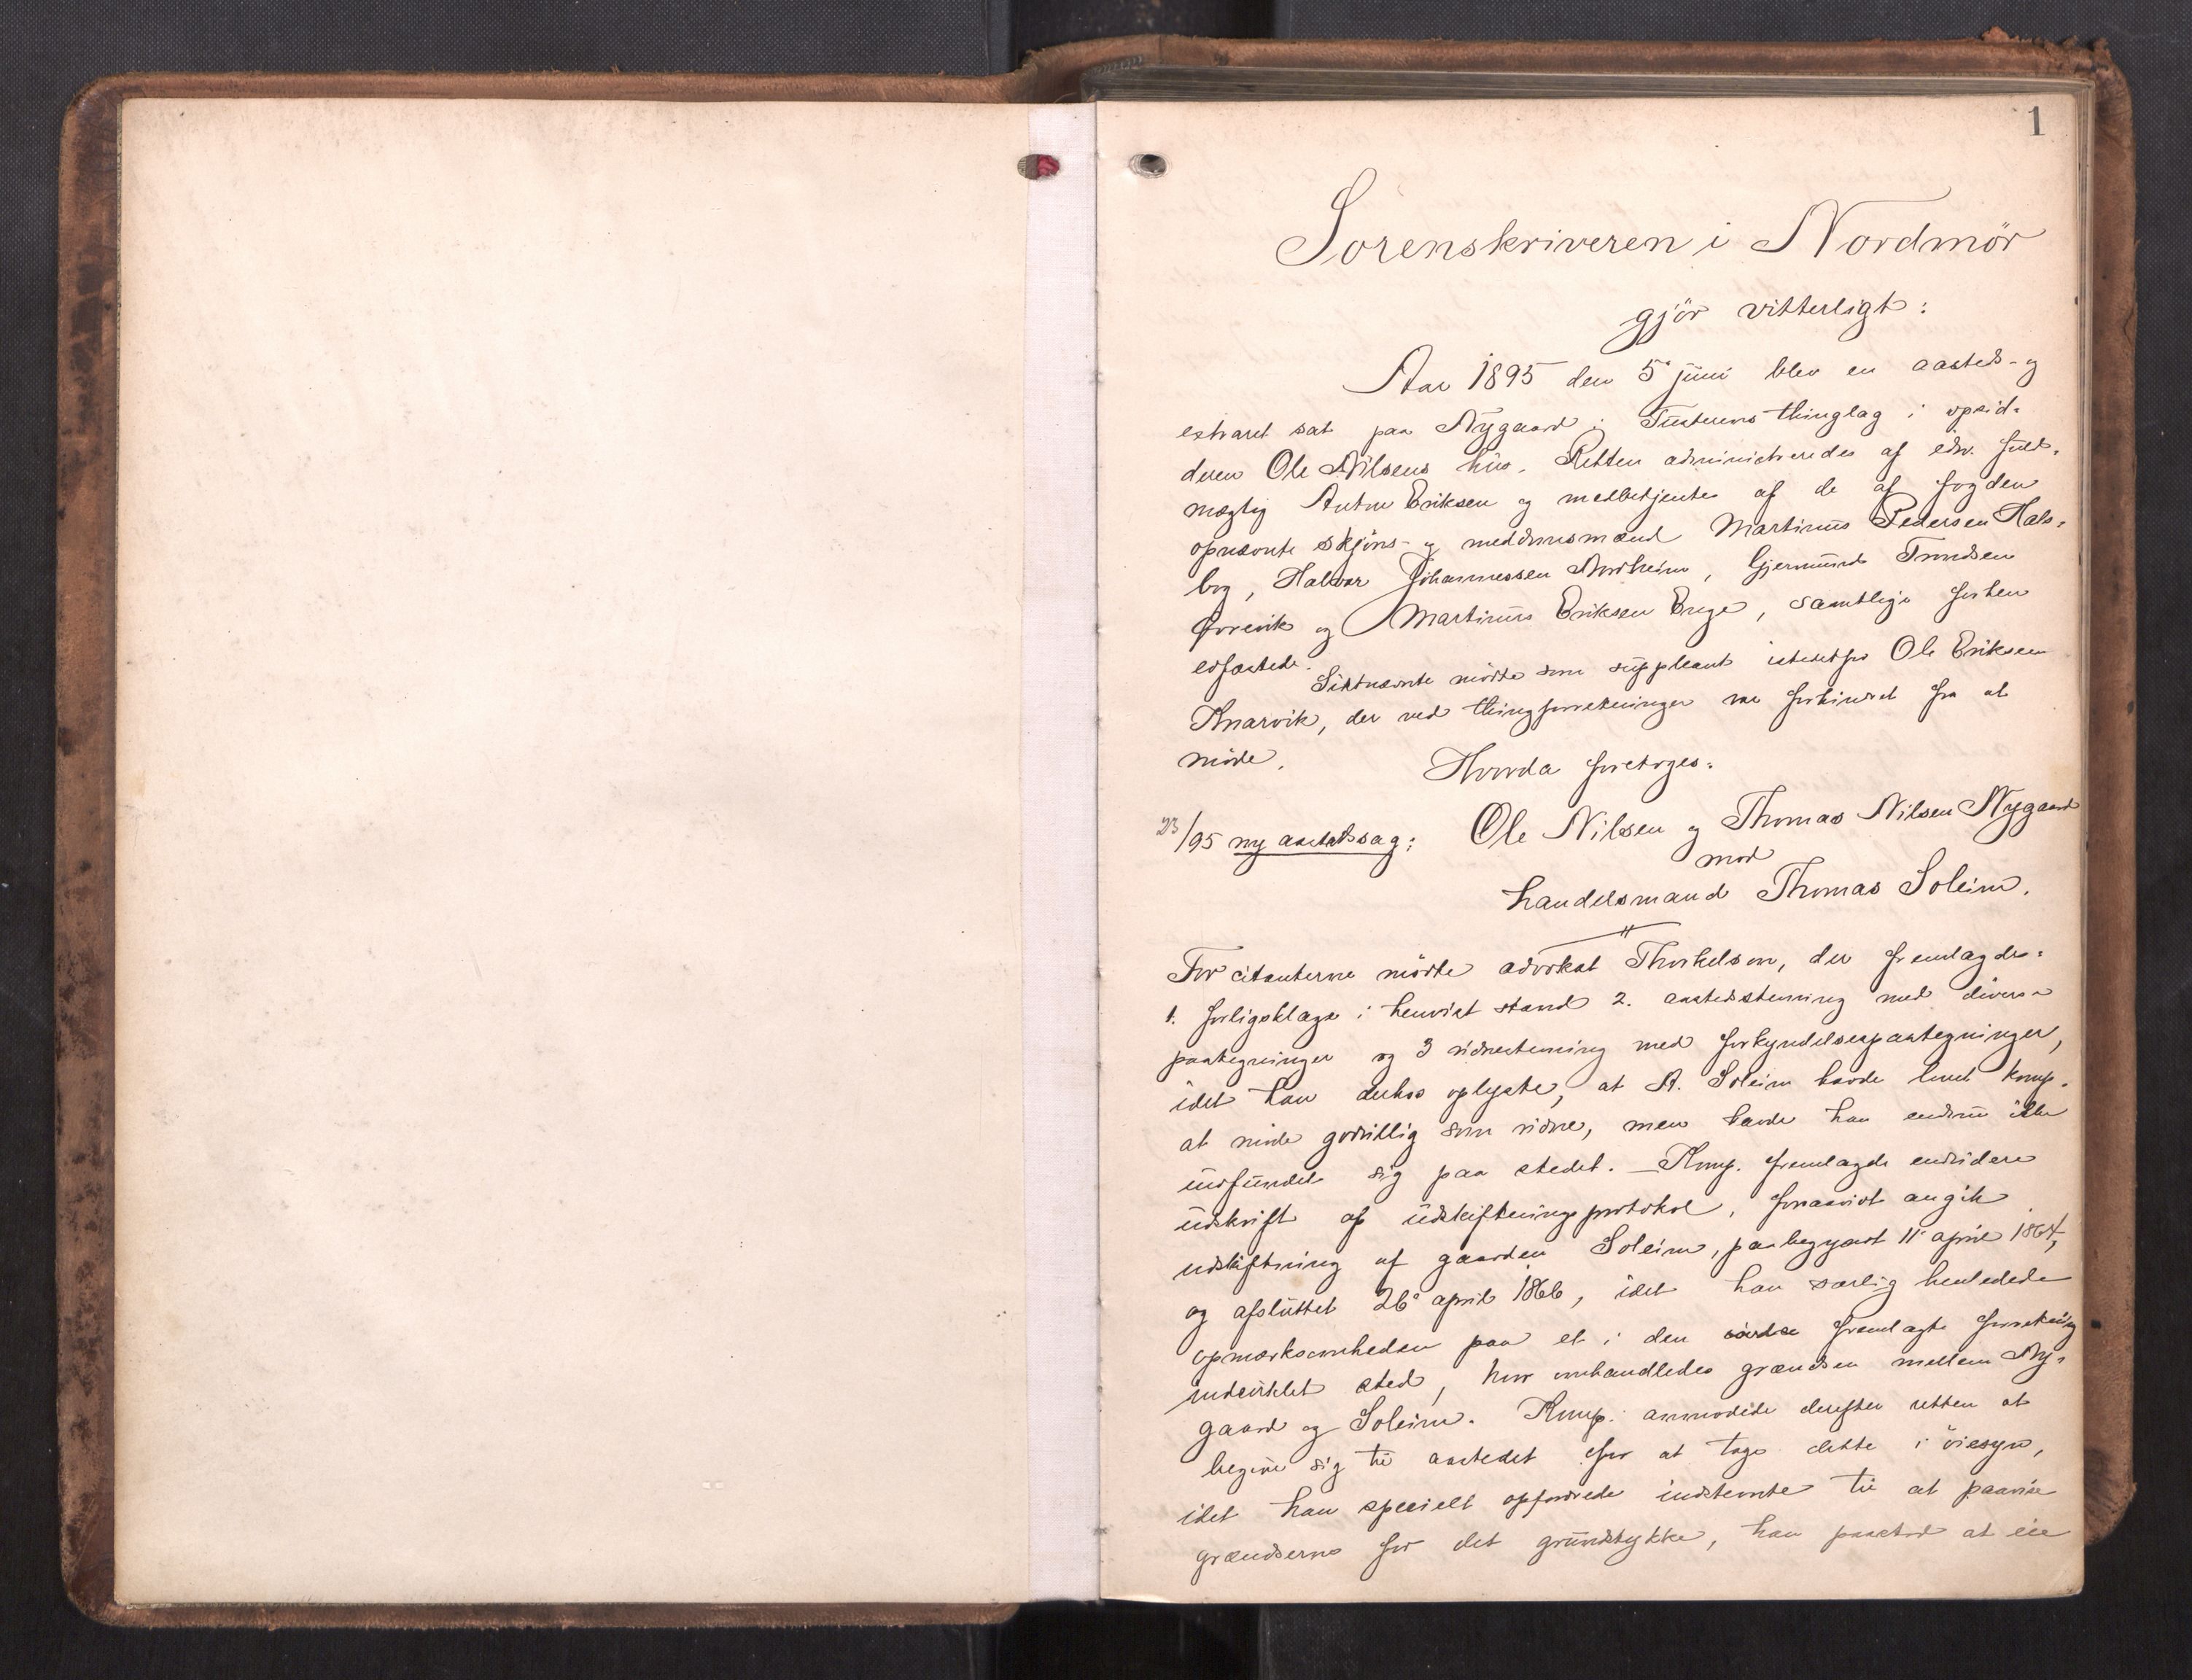 1
Sorenskriveren i Nordmör
gjör vitterligt:
Aar 1895 den 5' juni blev en aasteds- og
extraret sat paa Nygaard i Tusterens thinglag i opsid-
deren Ole Nilsens hus. Retten administreredes af edsv. fuld-
mægtig Anton Eriksen og medbetjentes af de af fogden
opnævnte skjöns- og meddomsmænd Martinus Pedersen Hals-
bog, Halvor Johannessen Nordheim, Gjermund Trondsen
og Martinus Eriksen Enge, samtlige forhen
edfæstede. Sidstnævnte mödte som suppleant istedetfor Ole Eriksen
Knarvik, der ved thingforretninger var forhindret fra at
möde.
Hvorda foretoges:
23/95 ny aastedssag: Ole Nilsen og Thomas Nilsen Nygaard
mod
handelsmand Thomas Soleim.
For citanterne mödte advokat Thorkelson, der fremlagde:
1. forligsklage i henvist stand 2. aastedsstevning med diverse
paategninger og 3 vidnestevning med forkyndelsespaategninger,
idet han derhos oplyste, at A. Soleim havde lovet komp.
at möde godvillig som vidne, men havde han endnu ikke
indfundet sig paa stedet. – Komp. fremlagde endvidere
udskrift af udskiftningsprotokol, forsaavidt angik
udskiftning af gaarden Soleim, paabegyndt 11' april 1864,
og afsluttet 26' april 1866, idet han særlig henledede
opmærksomheden paa et i den fremlagte forretning
indcirklet sted, hvor omhandledes grændsen mellem Ny-
gaard og Soleim. Komp. anmodede derefter retten at
begive sig til aastedet for at tage dette i öiesyn,
idet han specielt opfordrede indstevnte til at paavise
grændserne for det grundstykke, han paastod at eie